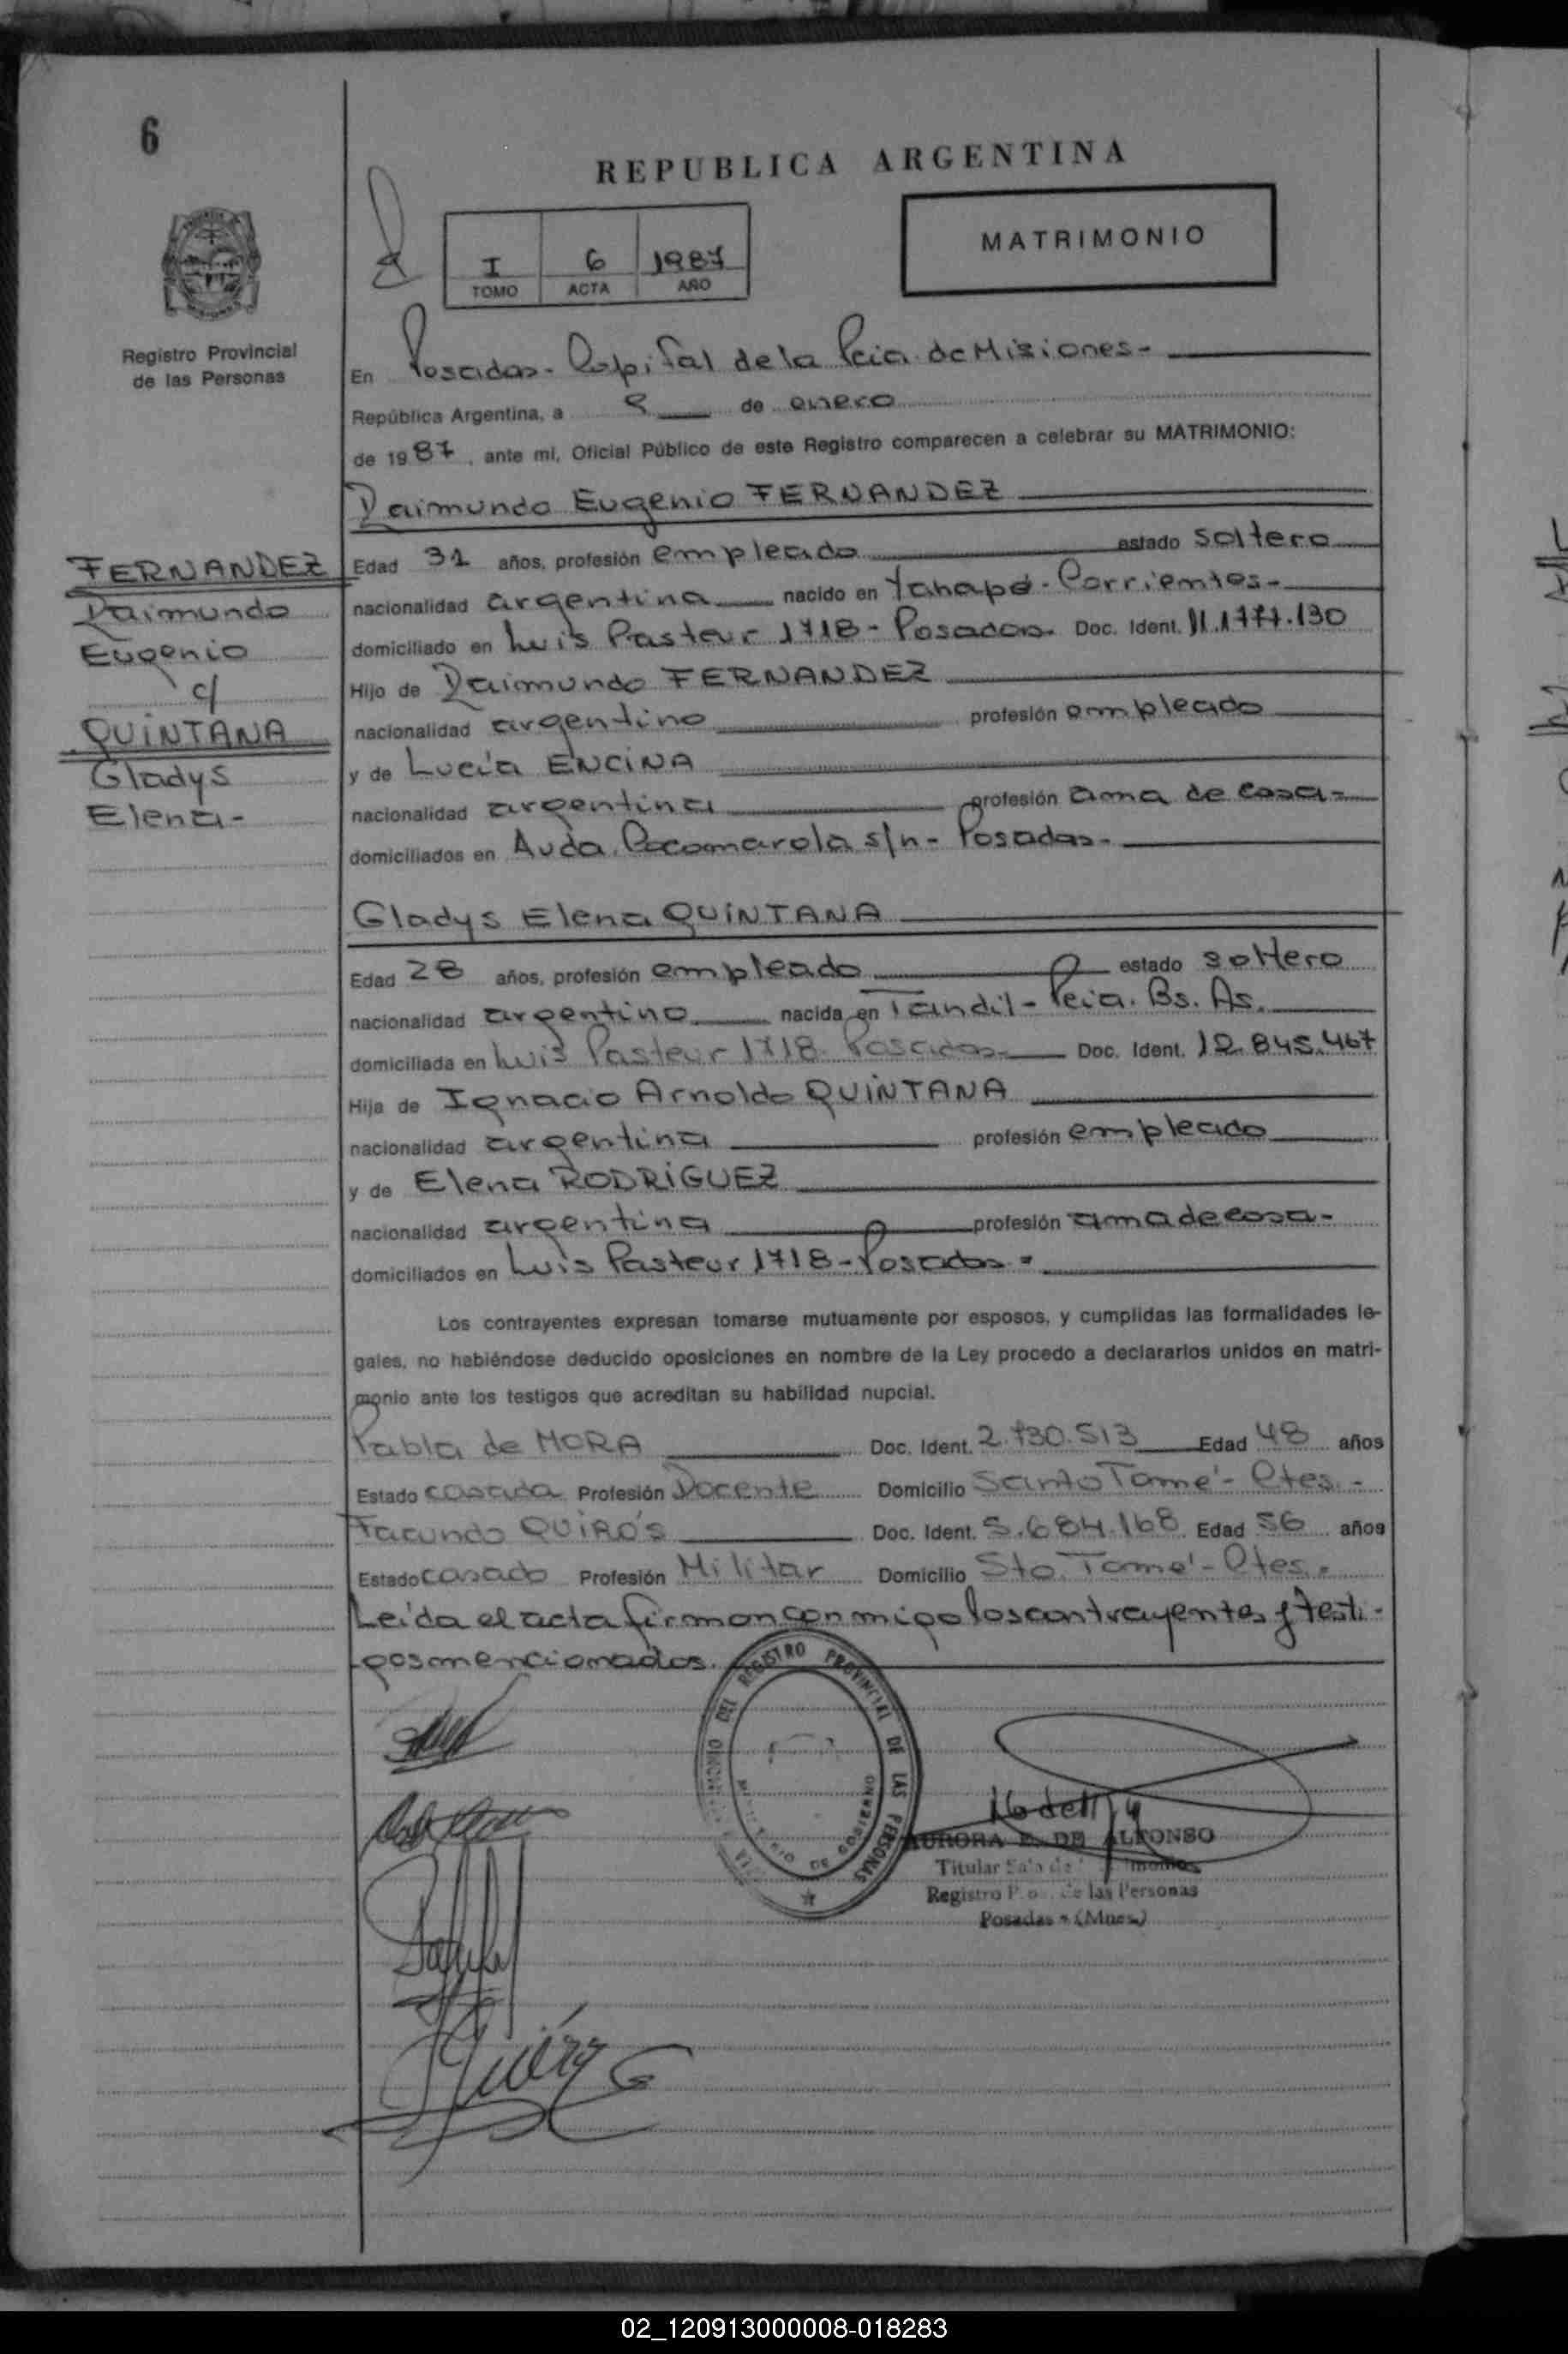 6
REPUBLICA ARGENTINA
MATRIMONIO
I 6 1987
TOMO ACTA AÑO
Registro Provincial
de las Personas
En Posadas - Capital de la Pcia. de Misiones -
República Argentina, a 8 de enero
de 1987, ante mí, Oficial Público de este Registro comparecen a celebrar su MATRIMONIO:
Raimundo Eugenio FERNANDEZ
FERNANDEZ
Raimundo
Eugenio
c/
QUINTANA
Gladys
Elena -
Edad 31 años, profesión empleado estado soltero
nacionalidad argentina nacido en Yahapé - Corrientes -
domiciliado en Luis Pasteur 1718 - Posadas. Doc. Ident. 11.177.130
Hijo de Raimundo FERNANDEZ
nacionalidad argentino profesión empleado
y de Lucía ENCINA
nacionalidad argentina profesión ama de casa -
domiciliados en Avda. Cocomarola s/n - Posadas -
Gladys Elena QUINTANA
Edad 28 años, profesión empleado estado soltero
nacionalidad argentino nacida en Tandil - Pcia. Bs. As.
domiciliada en Luis Pasteur 1718 - Posadas - Doc. Ident. 12.845.467
Hija de Ignacio Arnoldo QUINTANA
nacionalidad argentina profesión empleado
y de Elena RODRIGUEZ
nacionalidad argentina profesión ama de casa -
domiciliados en Luis Pasteur 1718 - Posadas -
Los contrayentes expresan tomarse mutuamente por esposos, y cumplidas las formalidades le-
gales, no habiéndose deducido oposiciones en nombre de la Ley procedo a declararlos unidos en matri-
monio ante los testigos que acreditan su habilidad nupcial.
Pabla de MORA Doc. Ident. 2.730.513 Edad 48 años
Estado casada Profesión Docente Domicilio Santo Tomé - Ctes. -
Facundo QUIROS Doc. Ident. 5.684.168 Edad 56 años
Estado casado Profesión Militar Domicilio Sto. Tomé - Ctes.
Leída el acta firman conmigo los contrayentes y testi-
gos mencionados.
DEL REGISTRO PROVINCIAL DE LAS PERSONAS
MINISTERIO DE GOBIERNO
AURORA E. DE ALFONSO
Titular Sala de
Registro de las Personas
Posadas - (Mnes.)
02_120913000008-018283